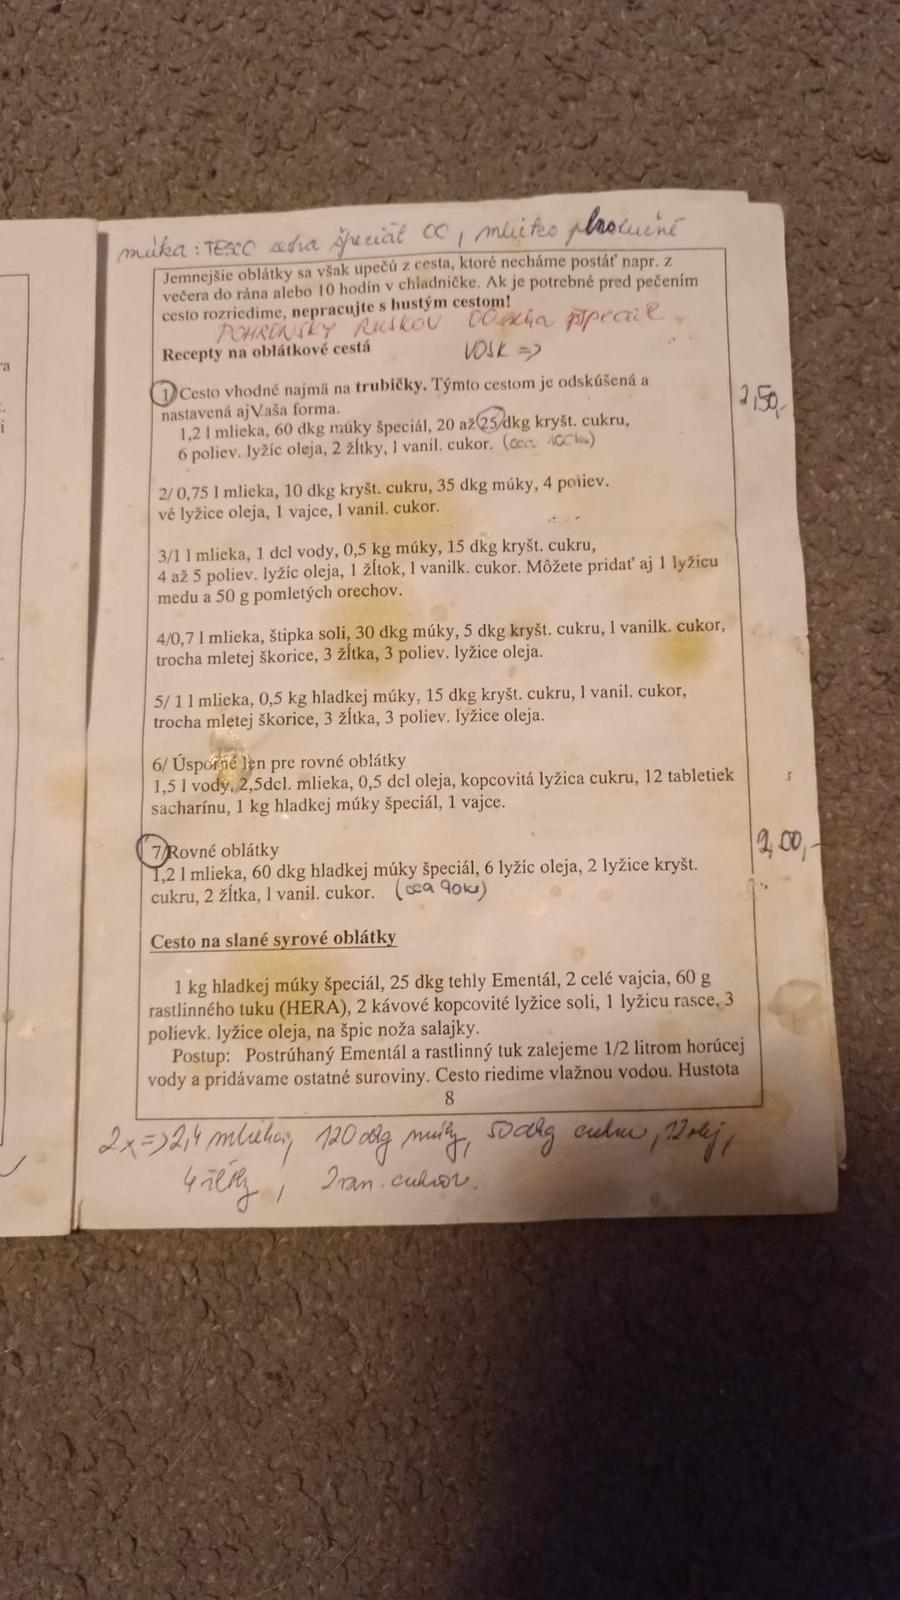 múka: TESCO extra špeciál 00, mlieko plnotučné
Jemnejšie oblátky sa však upečú z cesta, ktoré necháme postáť napr. z
večera do rána alebo 10 hodín v chladničke. Ak je potrebné pred pečením
cesto rozriedime, nepracujte s hustým cestom!
POHRONSKÝ RUSKOV 00 extra špeciál
Recepty na oblátkové cestá
VOSK =>
1/ Cesto vhodné najmä na trubičky. Týmto cestom je odskúšená a
nastavená aj Vaša forma.
2,50,-
1,2 l mlieka, 60 dkg múky špeciál, 20 až 25 dkg kryšt. cukru,
6 poliev. lyžíc oleja, 2 žĺtky, l vanil. cukor. (cca 100ks)
2/ 0,75 l mlieka, 10 dkg kryšt. cukru, 35 dkg múky, 4 poliev.
vé lyžice oleja, 1 vajce, l vanil. cukor.
3/1 l mlieka, 1 dcl vody, 0,5 kg múky, 15 dkg kryšt. cukru,
4 až 5 poliev. lyžíc oleja, 1 žĺtok, l vanilk. cukor. Môžete pridať aj 1 lyžicu
medu a 50 g pomletých orechov.
4/0,7 l mlieka, štipka soli, 30 dkg múky, 5 dkg kryšt. cukru, l vanilk. cukor,
trocha mletej škorice, 3 žĺtka, 3 poliev. lyžice oleja.
5/ 1 l mlieka, 0,5 kg hladkej múky, 15 dkg kryšt. cukru, l vanil. cukor,
trocha mletej škorice, 3 žĺtka, 3 poliev. lyžice oleja.
6/ Úsporné len pre rovné oblátky
1,5 l vody, 2,5dcl. mlieka, 0,5 dcl oleja, kopcovitá lyžica cukru, 12 tabletiek
sacharínu, 1 kg hladkej múky špeciál, 1 vajce.
7/Rovné oblátky
2,00,-
1,2 l mlieka, 60 dkg hladkej múky špeciál, 6 lyžíc oleja, 2 lyžice kryšt.
cukru, 2 žĺtka, l vanil. cukor. (cca 90ks)
Cesto na slané syrové oblátky
1 kg hladkej múky špeciál, 25 dkg tehly Ementál, 2 celé vajcia, 60 g
rastlinného tuku (HERA), 2 kávové kopcovité lyžice soli, 1 lyžicu rasce, 3
polievk. lyžice oleja, na špic noža salajky.
Postup: Postrúhaný Ementál a rastlinný tuk zalejeme 1/2 litrom horúcej
vody a pridávame ostatné suroviny. Cesto riedime vlažnou vodou. Hustota
8
2x=>2,4 mlieka, 120 dkg múky, 50 dkg cukru, 12 olej,
4 žĺtky, 2 van. cukor.